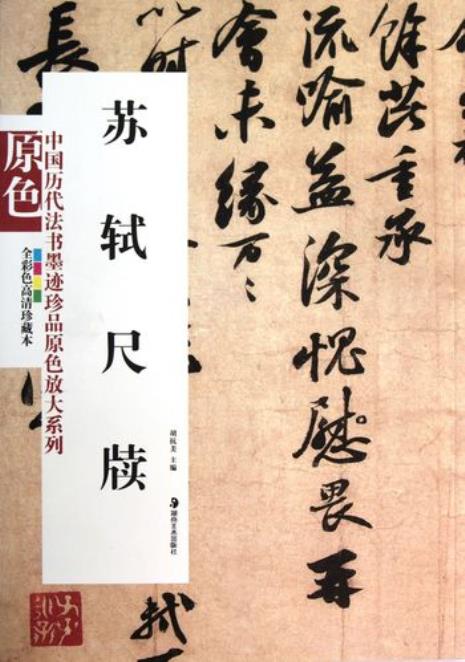 苏轼尺牍
原色
中国历代法书墨迹珍品原色放大系列
全彩色高清珍藏本
胡抗美 主编
湖南美术出版社
餘芘重承
流喻益深愧慰畏再
會未緣万〻
以時
軾
長